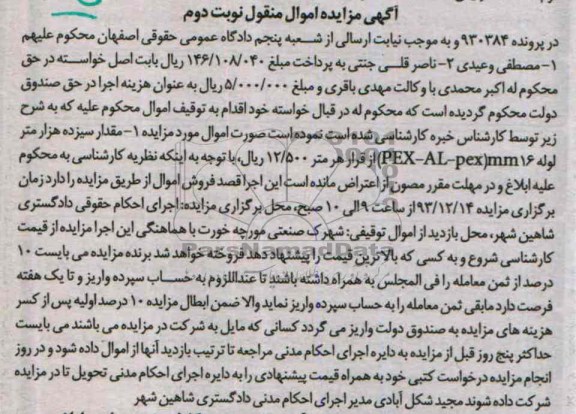 آگهی مزایده اموال منقول نوبت دوم
در پرونده ۹۳۰۳۸۴ و به موجب نیابت ارسالی از شعبه پنجم دادگاه عمومی حقوقی اصفهان محکوم علیهم
۱- مصطفی وعیدی ۲- ناصر قلسی جنتی به پرداخت مبلغ ۱۴۶/۱۰۸/۰۴۰ ریال بابت اصل خواسته در حق
محکوم له اکبر محمدی با وکالت مهدی باقری و مبلغ ۵/۰۰۰/۰۰۰ ریال به عنوان هزینه اجرا در حق صندوق
دولت محکوم گردیده است که محکوم له در قبال خواسته خود اقدام به توقیف اموال محکوم علیه که به شرح
زیر توسط کارشناس خبره کارشناسی شده است نموده است صورت اموال مورد مزایده ۱- مقدار سیزده هزار متر
لوله ۱۶mm(PEX-AL-pex) از قرار هر متر ۱۲/۵۰۰ ریال، با توجه به اینکه نظریه کارشناسی به محکوم
علیه ابلاغ و در مهلت مقرر مصون از اعتراض مانده است این اجرا قصد فروش اموال از طریق مزایده را دارد زمان
برگزاری مزایده ۹۳/۱۲/۱۴ از ساعت ۹ الی ۱۰ صبح، محل برگزاری مزایده: اجرای احکام حقوقی دادگستری
شاهین شهر، محل بازدید از اموال توقیفی: شهرک صنعتی مورچه خورت با هماهنگی این اجرا مزایده از قیمت
کارشناسی شروع و به کسی که بالاترین قیمت را پیشنهاد دهد فروخته خواهد شد برنده مزایده می بایست ۱۰
درصد از ثمن معامله را فی المجلس به همراه داشته باشند تا عنداللزوم به حساب سپرده واریز و تا یک هفته
فرصت دارد مابقی ثمن معامله را به حساب سپرده واریز نماید والا ضمن ابطال مزایده ۱۰ درصد اولیه پس از کسر
هزینه های مزایده به صندوق دولت واریز می گردد کسانی که مایل به شرکت در مزایده می باشند می بایست
حداکثر پنج روز قبل از مزایده به دایره اجرای احکام مدنی مراجعه تا ترتیب بازدید آنها از اموال داده شود و در روز
انجام مزایده درخواست کتبی خود به همراه قیمت پیشنهادی را به دایره اجرای احکام مدنی تحویل تا در مزایده
شرکت داده شوند مجید شکل آبادی مدیر اجرای احکام مدنی دادگستری شاهین شهر
ParsNamadData